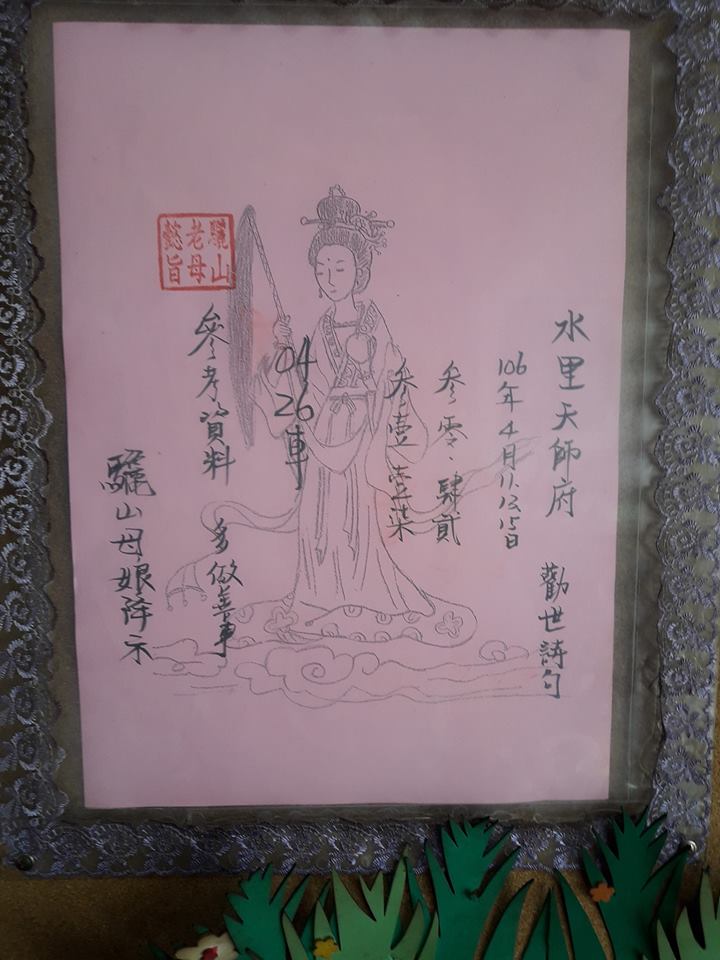 水里天師府 勸世詩句
106年4月11.12.15日
參零、肆貳
參壹 壹柒
04 26車
參考資料 多做善事
驪山老母懿旨
驪山母娘降示